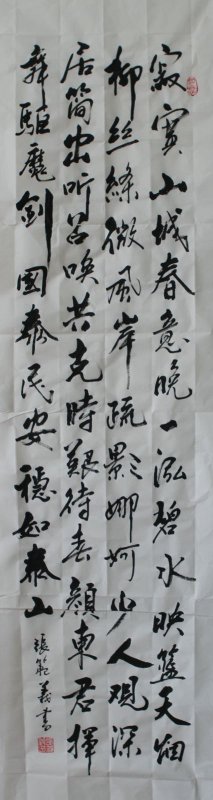 寂寞山城春意晚一泓碧水映藍天烟
柳丝絛微風岸疏影娜婀少人观深
居简出听召唤共克時艱待春顏東君揮
舞驱魔劍國泰民安穩如泰山
張範義書